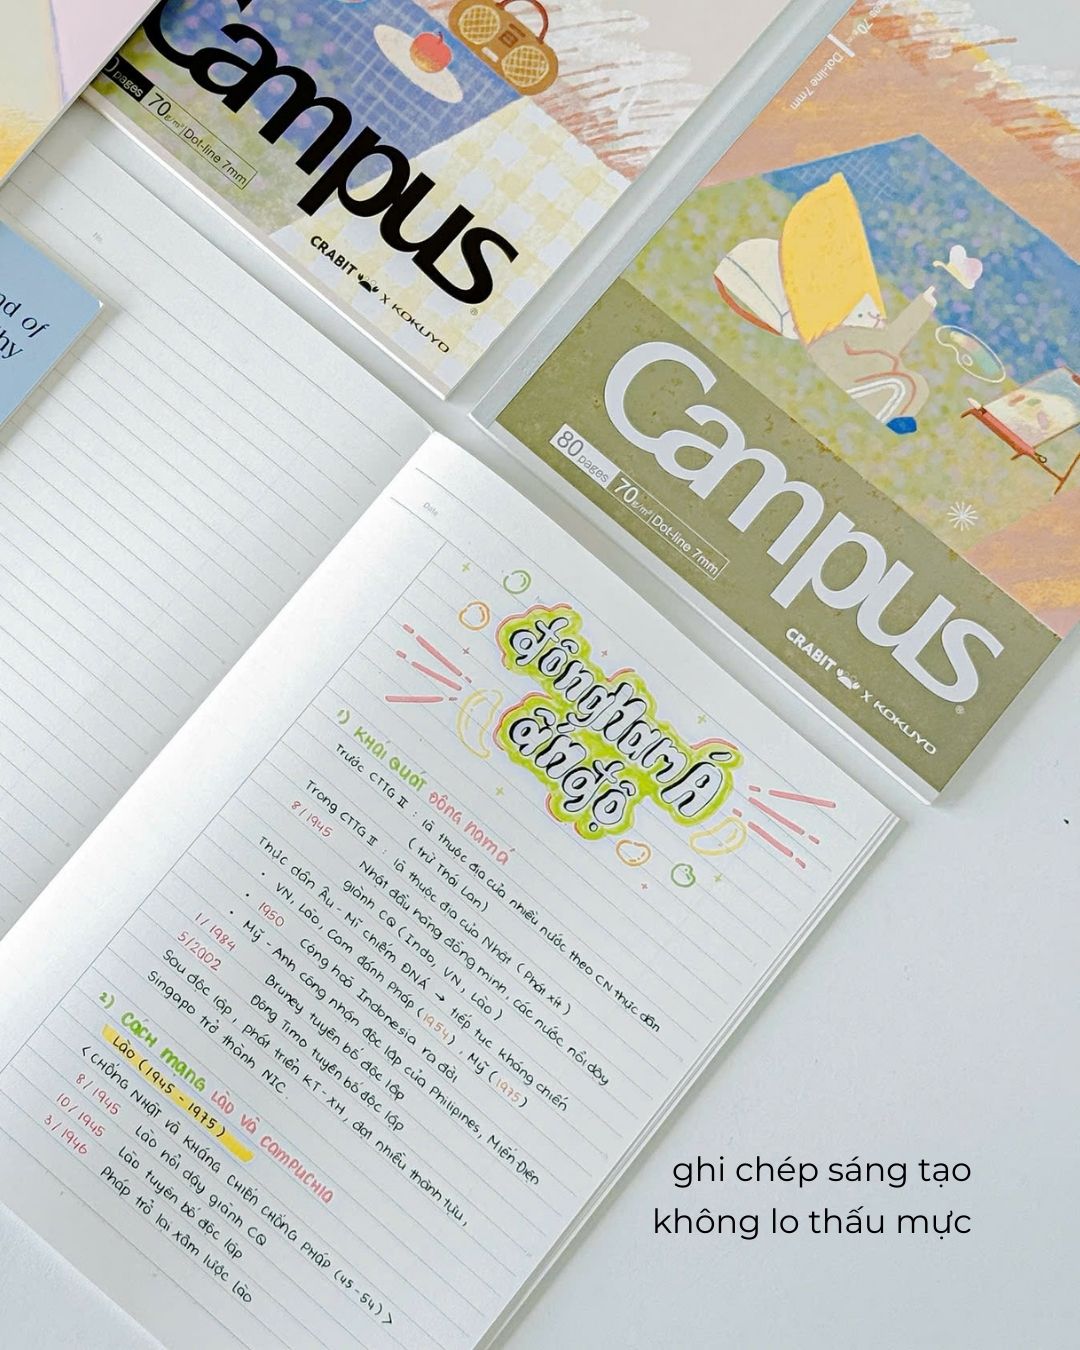 Campus
pages 70g/m² Dot-line 7mm
CRABIT x KOKUYO
70
Dot-line 7mm
Campus
80 pages 70g/m² Dot-line 7mm
CRABIT x KOKUYO
nd of
hy
No.
Date
đông Nam Á
ấn độ
1) KHÁI QUÁT ĐÔNG NAM Á
Trước CTTG II : là thuộc địa của nhiều nước theo CN thực dân
( trừ Thái Lan )
Trong CTTG II : là thuộc địa của Nhật ( Phát xít )
8/1945 Nhật đầu hàng đồng minh, các nước nổi dậy
giành CQ ( Indo, VN, Lào )
Thực dân Âu - Mĩ chiếm ĐNÁ → tiếp tục kháng chiến
• VN, Lào, Cam đánh Pháp ( 1954 ) , Mỹ ( 1975 )
• 1950 Cộng hoà Indonesia ra đời
• Mỹ - Anh công nhận độc lập của Philipines, Miến Điện
1/1984 Bruney tuyên bố độc lập
5/2002 Đông Timo tuyên bố độc lập
Sau độc lập, phát triển KT - XH, đạt nhiều thành tựu,
Singapo trở thành NIC.
2) CÁCH MẠNG LÀO VÀ CAMPUCHIA
Lào ( 1945 - 1975 )
< CHỐNG NHẬT VÀ KHÁNG CHIẾN CHỐNG PHÁP ( 45 - 54 ) >
8/1945 Lào nổi dậy giành CQ
10/1945 Lào tuyên bố độc lập
3/1946 Pháp trở lại xâm lược Lào
ghi chép sáng tạo
không lo thấu mực